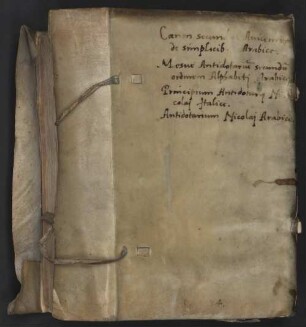 Canon secun
de simplicib. Arabice.
Mesue Antidotariũ secundũ
ordinem Alphabeti Arabice
Principium Antidotarij Ni
colaj Italice.
Antidotarium Nicolaj Arabice